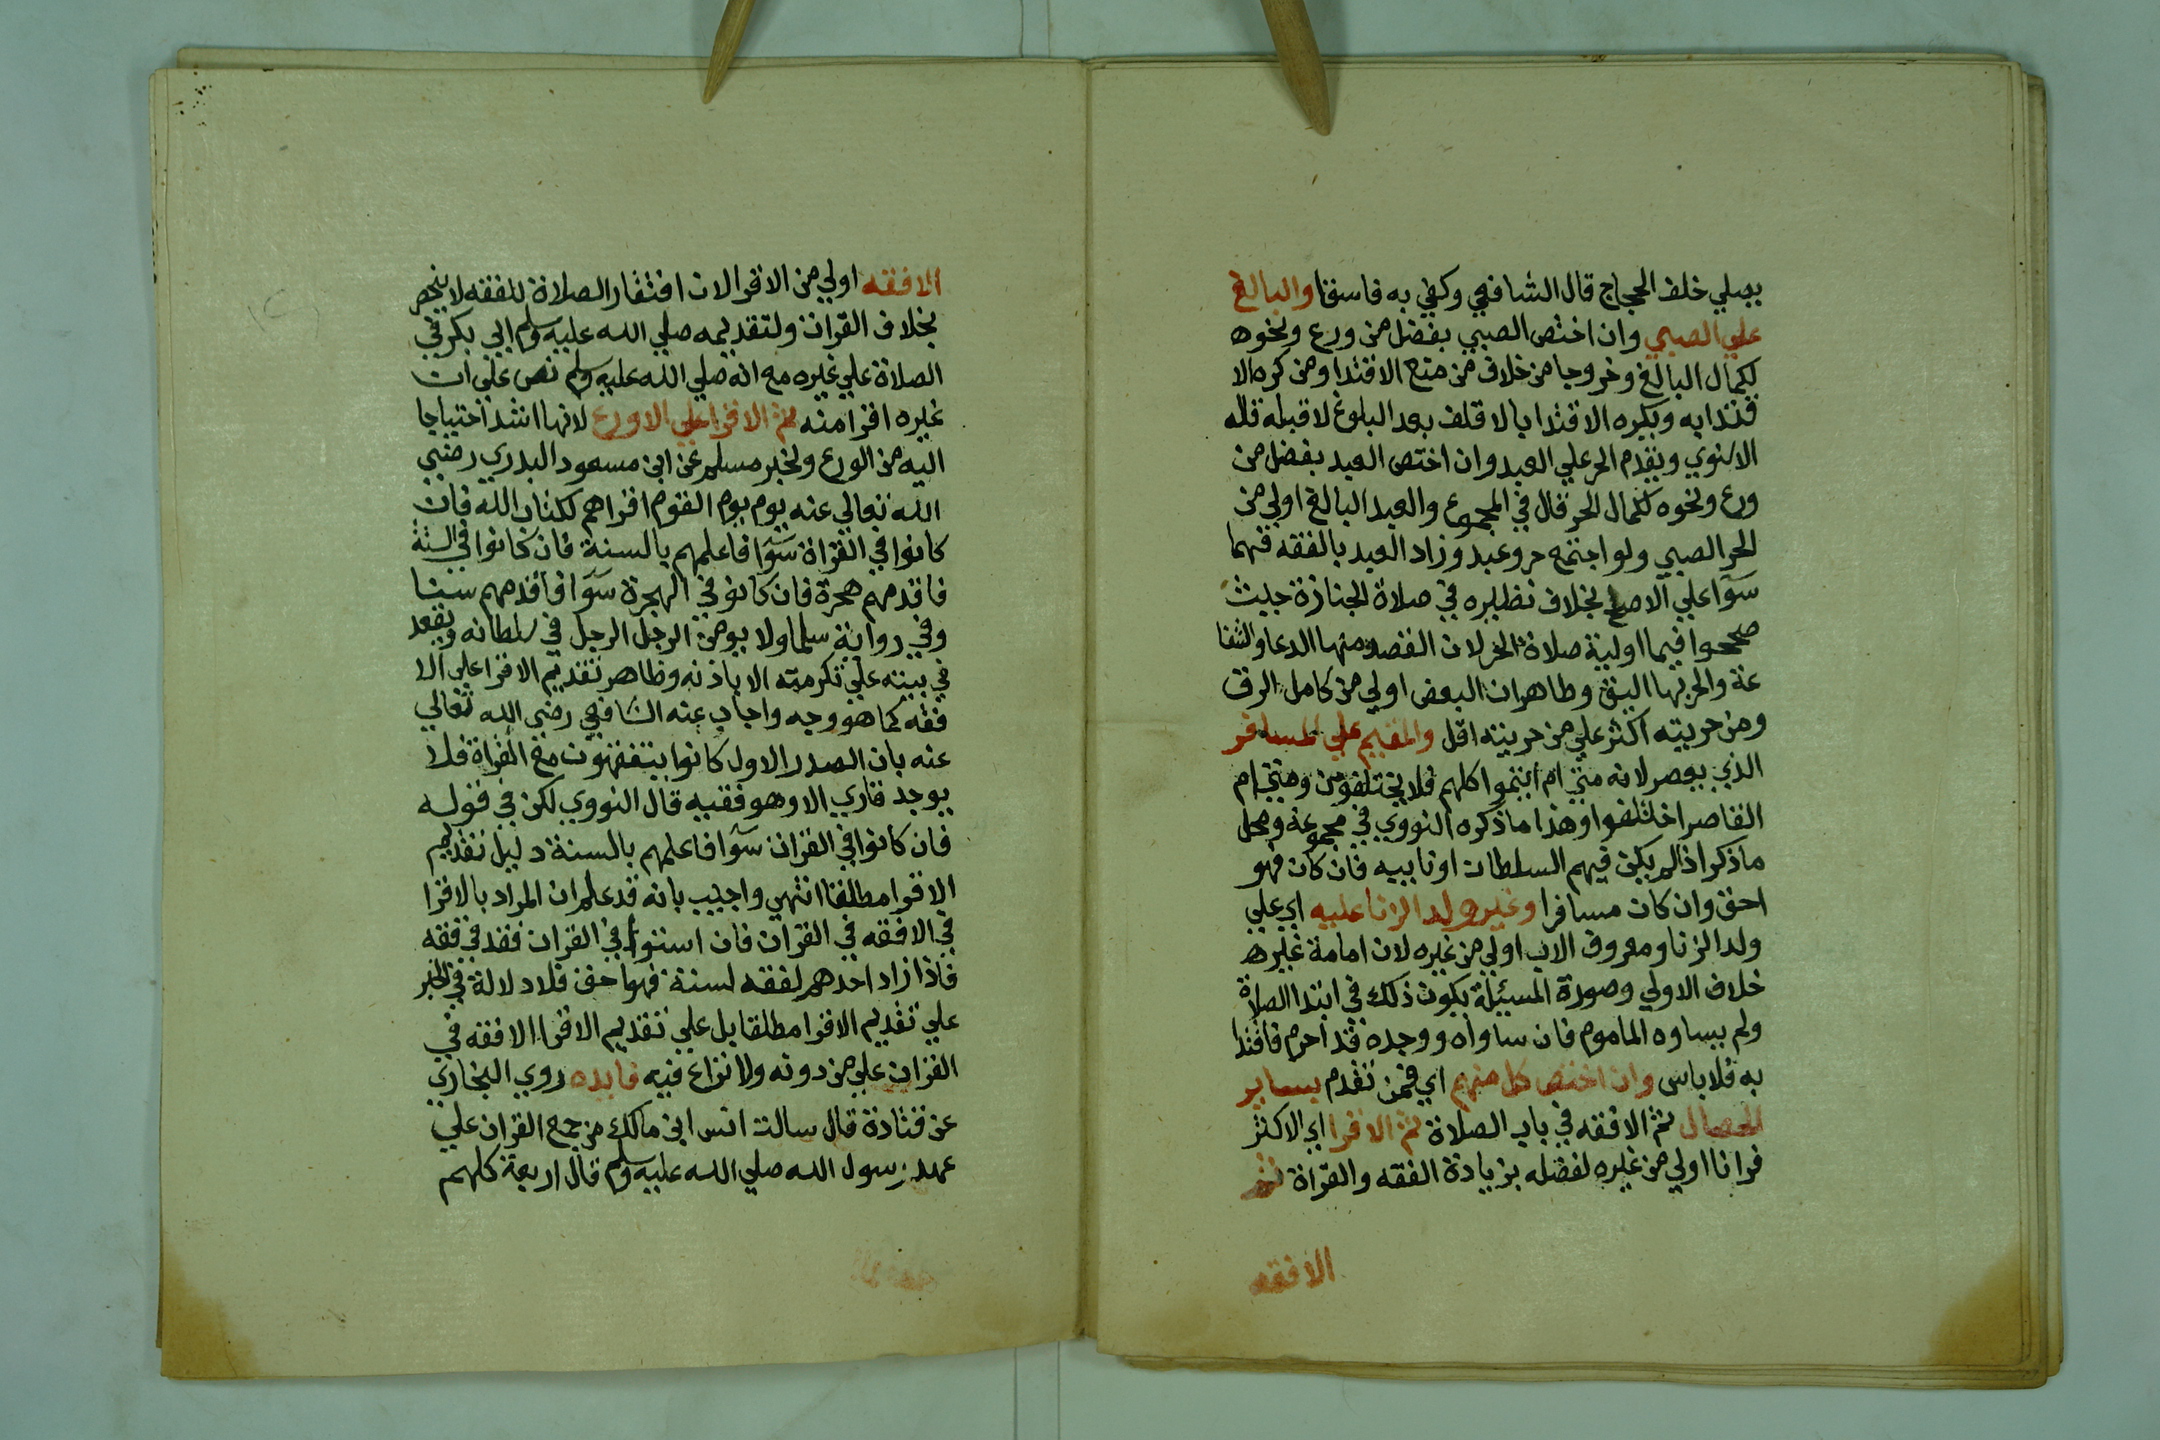 يصلي خلف الحجاج قال الشافعي وكفي به فاسقا والبالغ
علي الصبي وان اختص الصبي بفضل من ورع ونحوه
لكمال البالغ وخروجا من خلاف من منع الاقتدا ومن كره الا
قتدا به ويكره الاقتدا بالاقلف بعد البلوغ لا قبله قاله
الاسنوي ويقدم الحر علي العبد وان اختص العبد بفضل من
ورع ونحوه لكمال الحر قال في المجموع والعبد البالغ اولي من
الحر الصبي ولو اجتمع حر وعبد وزاد العبد بالفقه فهما
سوا علي الاصح بخلاف نظيره في صلاة الجنازة حيث
صححوا فيها اولية صلاة الحر لان القصد منها الدعا والشفا
عة والحر بها اليق وظاهر ان البعض اولي من كامل الرق
ومن حريته اكثر علي من حريته اقل والمقيم علي المسافر
الذي يقصر لانه متي ام ايتموا كلهم فلا يختلفون ومتي ام
القاصر اختلفوا وهذا ما ذكره النووي في مجموعه ومحل
ما ذكر اذا لم يكن فيهم السلطان او نايبه فان كان فهو
احق وان كان مسافرا وغير ولد الزنا عليه اي علي
ولد الزنا ومعروف الاب اولي من غيره لان امامة غيره
خلاف الاولي وصورة المسئلة يكون ذلك في ابتدا الصلاة
ولم يساوه الماموم فان ساواه ووجده قد احرم فاقتدا
به فلا باس وان اختص كل منهم اي فمن تقدم بساير
الخصال ثم الافقه في باب الصلاة ثم الاقرا اي الاكثر
قرانا اولي من غيره لفضله بزيادة الفقه والقراة ثم
الافقه
الافقه اولي من الاقرا لان افتقار الصلاة للفقه لا ينحصر
بخلاف القران ولتقديمه صلي الله عليه وسلم ابي بكر في
الصلاة علي غيره مع انه صلي الله عليه وسلم نص علي ان
غيره اقرا منه ثم الاقرا علي الاورع لانها اشد احتياجا
اليه من الورع ولخبر مسلم عن ابن مسعود البدري رضي
الله تعالي عنه يوم يوم القوم اقراهم لكتاب الله فان
كانوا في القراة سوا فاعلمهم بالسنة فان كانوا في السنة
فاقدمهم هجرة فان كانو في الهجرة سوا فاقدمهم سنا
وفي رواية سلما ولا يومن الرجل الرجل في سلطانه ويقعد
في بيته علي تكرمته الا باذنه وظاهر تقديم الاقرا علي الا
فقه كما هو وجه واجاب عنه الشافعي رضي الله تعالي
عنه بان الصدر الاول كانوا يتفقهون مع القراة فلا
يوجد قاري الا وهو فقيه قال النووي لكن في قوله
فان كانوا في القران سوا فاعلمهم بالسنة دليل تقديم
الاقرا مطلقا انتهي واجيب بانه قد علم ان المراد بالاقرا
في الافقه في القران فان استووا في القران فقد في فقه
فاذا زاد احدهم لفقه لسنة فهو احق فلا دلالة في الخبر
علي تقديم الاقرا مطلقا بل علي تقديم الاقرا الافقه في
القران علي من دونه ولا نزاع فيه فايده روي البخاري
عن قتادة قال سالت انس ابن مالك من جمع القران علي
عهد رسول الله صلي الله عليه وسلم قال اربعة كلهم